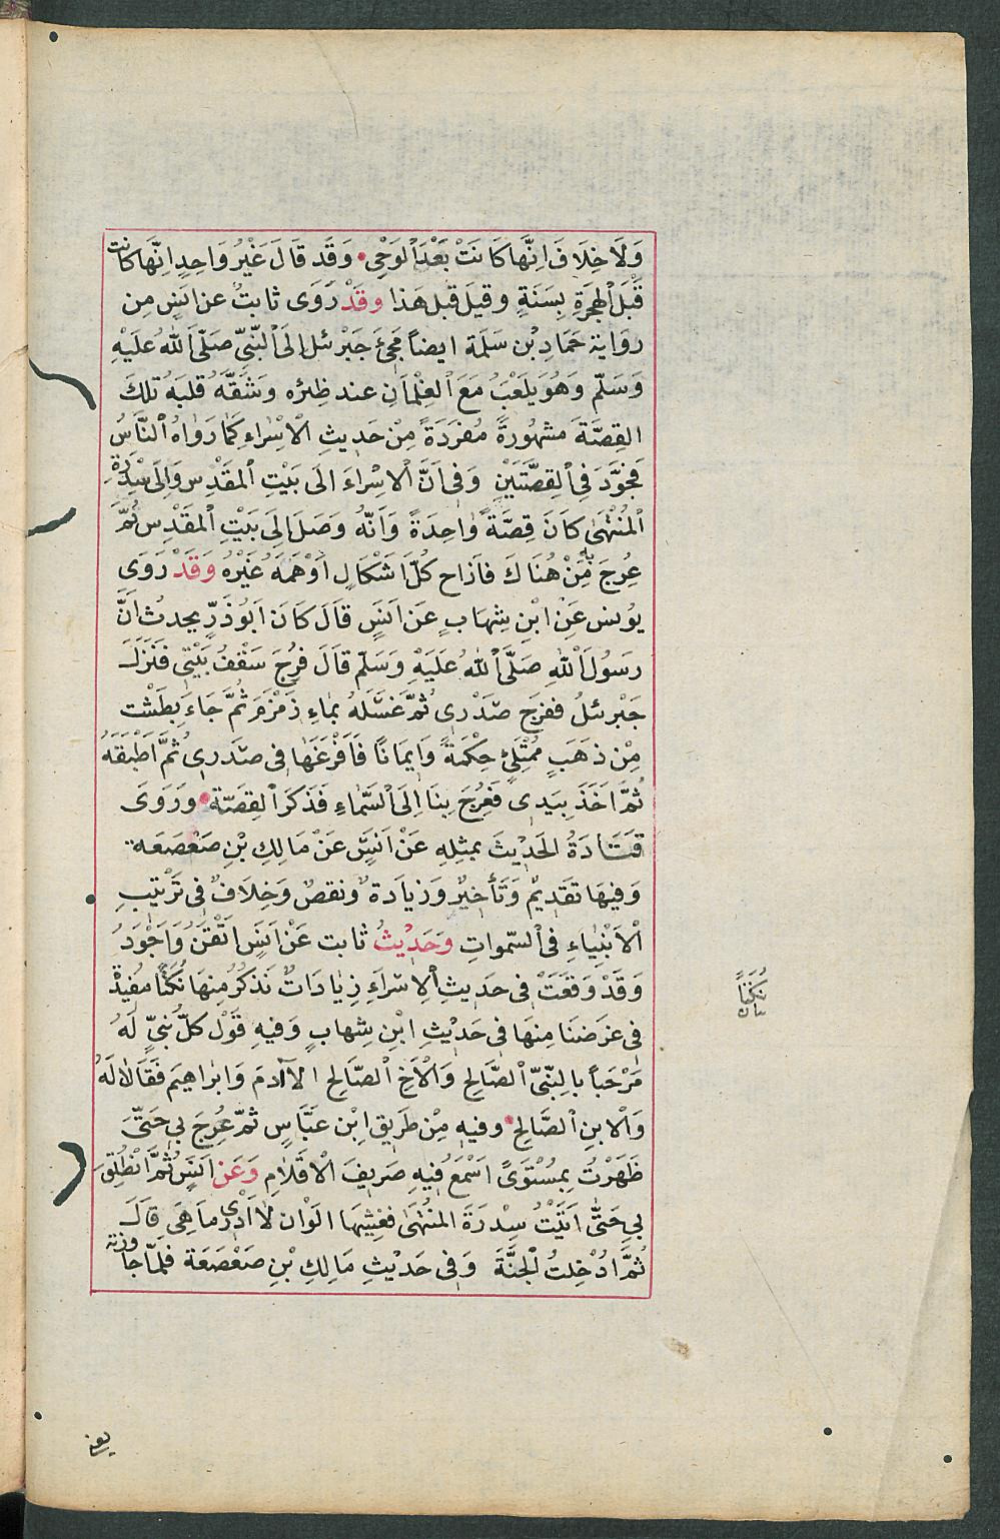 وَلَا خِلَافَ اِنَّهَا كَانَتْ بَعْدَ الْوَحْىِ وَقَد قَالَ غَيْرُ وَاحِدٍ اِنَّهَا كَانَتْ
قَبْلَ الْهِجْرَةِ بِسَنَةٍ وقيلَ قبلَ هَذا وقَدْ رَوَى ثابتٌ عن انسٍ مِن
رِوَاية حَمّادِ بْن سَلَمَة ايضاً مَجِئَ جَبْرئل اِلَى النَّبِىِّ صَلَّى اللّٰهُ عَلَيْهِ
وَسَلَّمَ وَهُوَ يَلْعَبُ مَعَ الْغِلْمَانِ عند ظِئْرِه وَشَقَّهُ قلبَهُ تلكَ
القِصَّةَ مَشْهُورَةً مُفْرَدَةً مِنْ حَدِيثِ الْاِسْرَاءِ كَمَا رَوَاهُ النَّاسُ
فَجَوَّدَ فِى الْقِصَّتَيْنِ وَفِى اَنَّ الْاِسْرَاءَ اِلَى بَيْتِ الْمَقْدِسِ وَاِلَى سِدْرَةِ
الْمُنْتَهَى كَانَ قِصَّةً وَاحِدَةً وَاَنَّهُ وَصَلَ اِلَى بَيْتِ الْمَقْدِسِ ثُمَّ
عُرِجَ بِهِ مِنْ هُنَاكَ فَاَزَاحَ كُلَّ اَشْكَالٍ اَوْهَمَهُ غَيْرُهُ وَقَدْ رَوَى
يُونس عَنِ ابْنِ شِهَابٍ عَن اَنَسٍ قَالَ كَانَ اَبُو ذَرٍّ يحدثُ اَنَّ
رَسُولَ اللّٰهِ صَلَّى اللّٰهُ عَلَيْهِ وَسَلَّمَ قَالَ فُرِجَ سَقْفُ بَيْتِى فَنَزَلَ
جَبْرئلُ ففرج صَدْرِى ثُمَّ غَسَلَهُ بماءِ زَمْزَمَ ثُمَّ جَاءَ بِطَشْت
مِنْ ذهَبٍ مُمْتَلِئٍ حِكْمَةً وَاِيمَانًا فَاَفْرَغَهَا فِى صَدرِى ثُمَّ اَطْبَقَهُ
ثُمَّ اَخَذَ بِيَدِى فَعُرِجَ بِنَا اِلَى السَّمَاءِ فَذَكَرَ القِصَّةَ وَرَوَى
قَتَادَةُ الحَدِيْثَ بمثلِهِ عَنْ اَنَسٍ عَنْ مَالِكِ بْنِ صَعْصَعَةَ
وَفِيهَا تقدِيمٌ وَتَأخِيرٌ وَزِيَادَةٌ ونقصٌ وَخِلَافٌ فِى تَرْتِيبِ
الْاَنْبِيَاءِ فِى السَّموَاتِ وَحَدِيْثُ ثابت عَنْ اَنَسٍ اَتْقَنُ وَاَجْوَدُ
وَقَدْ وَقَعَتْ فِى حَدِيثِ الْاِسْرَاءِ زِيَادَاتٌ نَذكُرُ مِنهَا نُكَتًا مُفِيدَةً
فِى غَرَضنَا مِنهَا فِى حَدِيْثِ ابْنِ شِهابٍ وَفيهِ قَوْل كلّ نَبِىٍّ لَهُ
مَرْحَباً بِالنَّبِىِّ الصَّالِحِ وَالْاَخِ الصَّالِحِ الَّا آدمَ وَابْرَاهِيمَ فَقَالَا لَهُ
وَالْابنِ الصَّالِح وفيهِ مِنْ طَرِيقِ ابْن عَبَّاسٍ ثمَّ عُرِجَ بِى حَتَّى
ظَهَرْتُ بِمُسْتَوًى اَسْمَعُ فيهِ صَرِيفَ الْاقلَامِ وَعَن اَنَسٍ ثُمَّ انْطُلِقَ
بِى حَتَّى اَتَيْتُ سِدْرَةَ المُنْتَهَى فَغَشِيَهَا الْوَان لَا اَدْرِى مَا هِىَ قَالَ
ثُمَّ اُدْخِلتُ الْجَنَّةَ وَفِى حَدِيْثِ مَالِكِ بْنِ صَعْصَعَة فلمَّا جاوزته
نُكَتاً
بيان